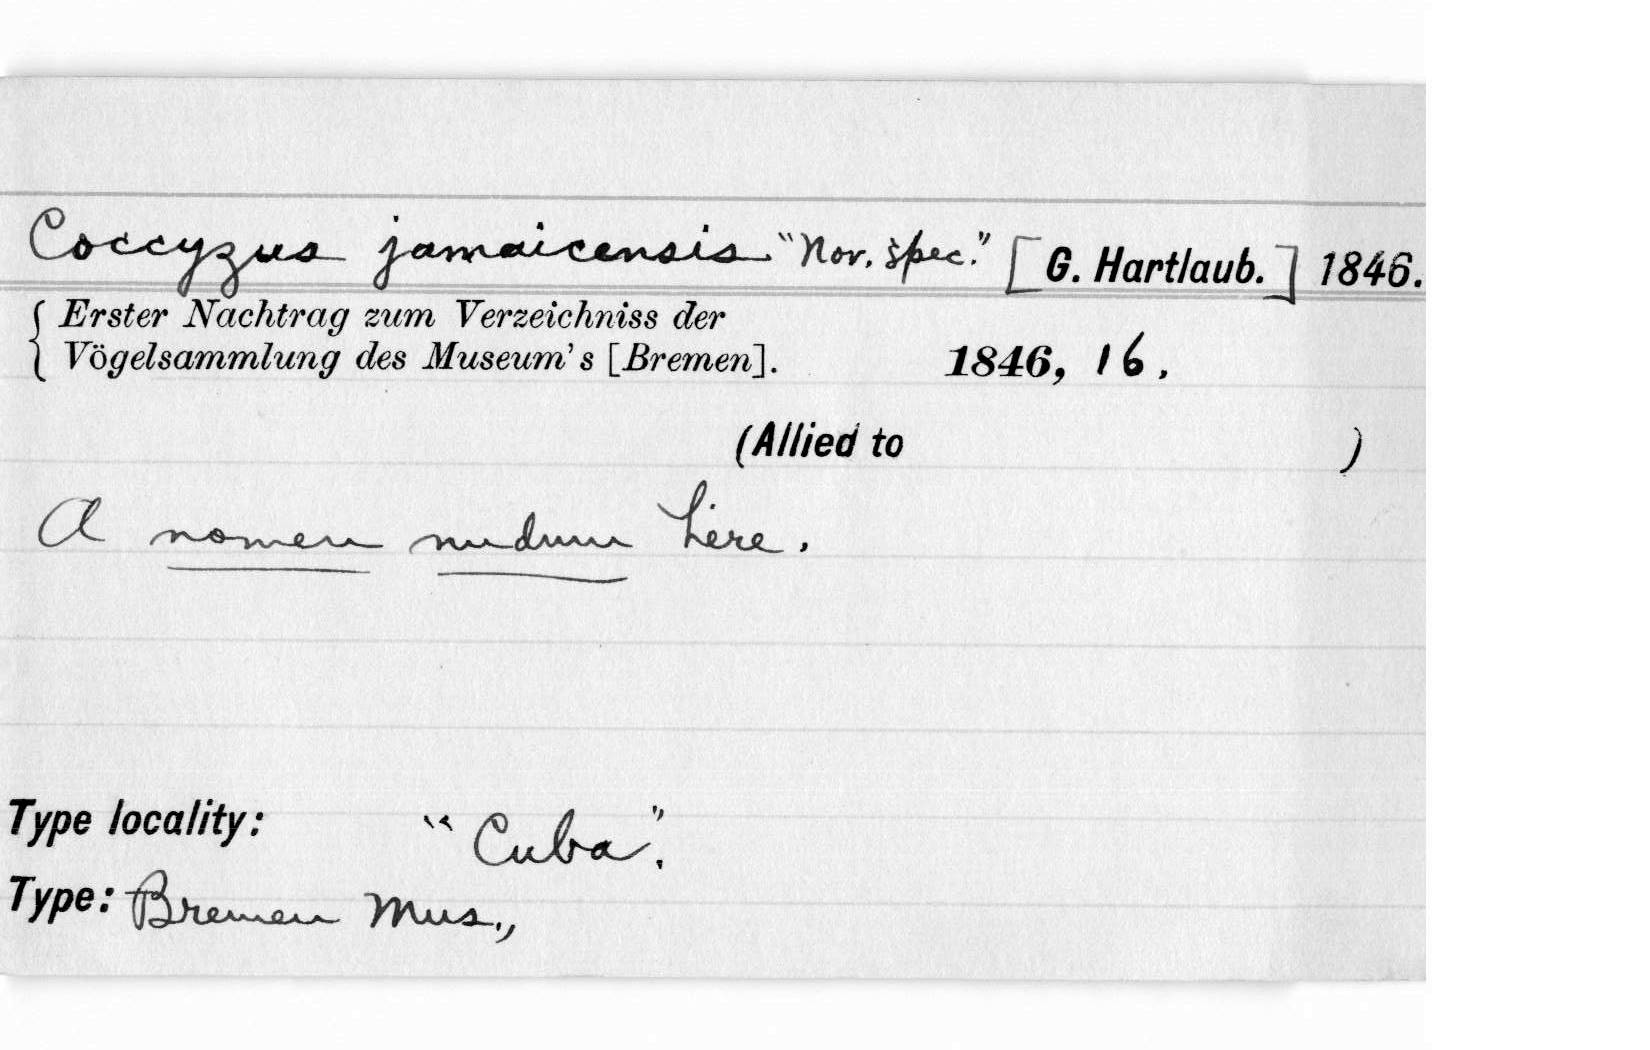 Coccyzus jamaicensis "Nov. spec." [G. Hartlaub.] 1846.
{ Erster Nachtrag zum Verzeichniss der
Vögelsammlung des Museum's [Bremen]. 1846, 16.
(Allied to )
A nomen nudum here.
Type locality: "Cuba".
Type: Bremen Mus.,